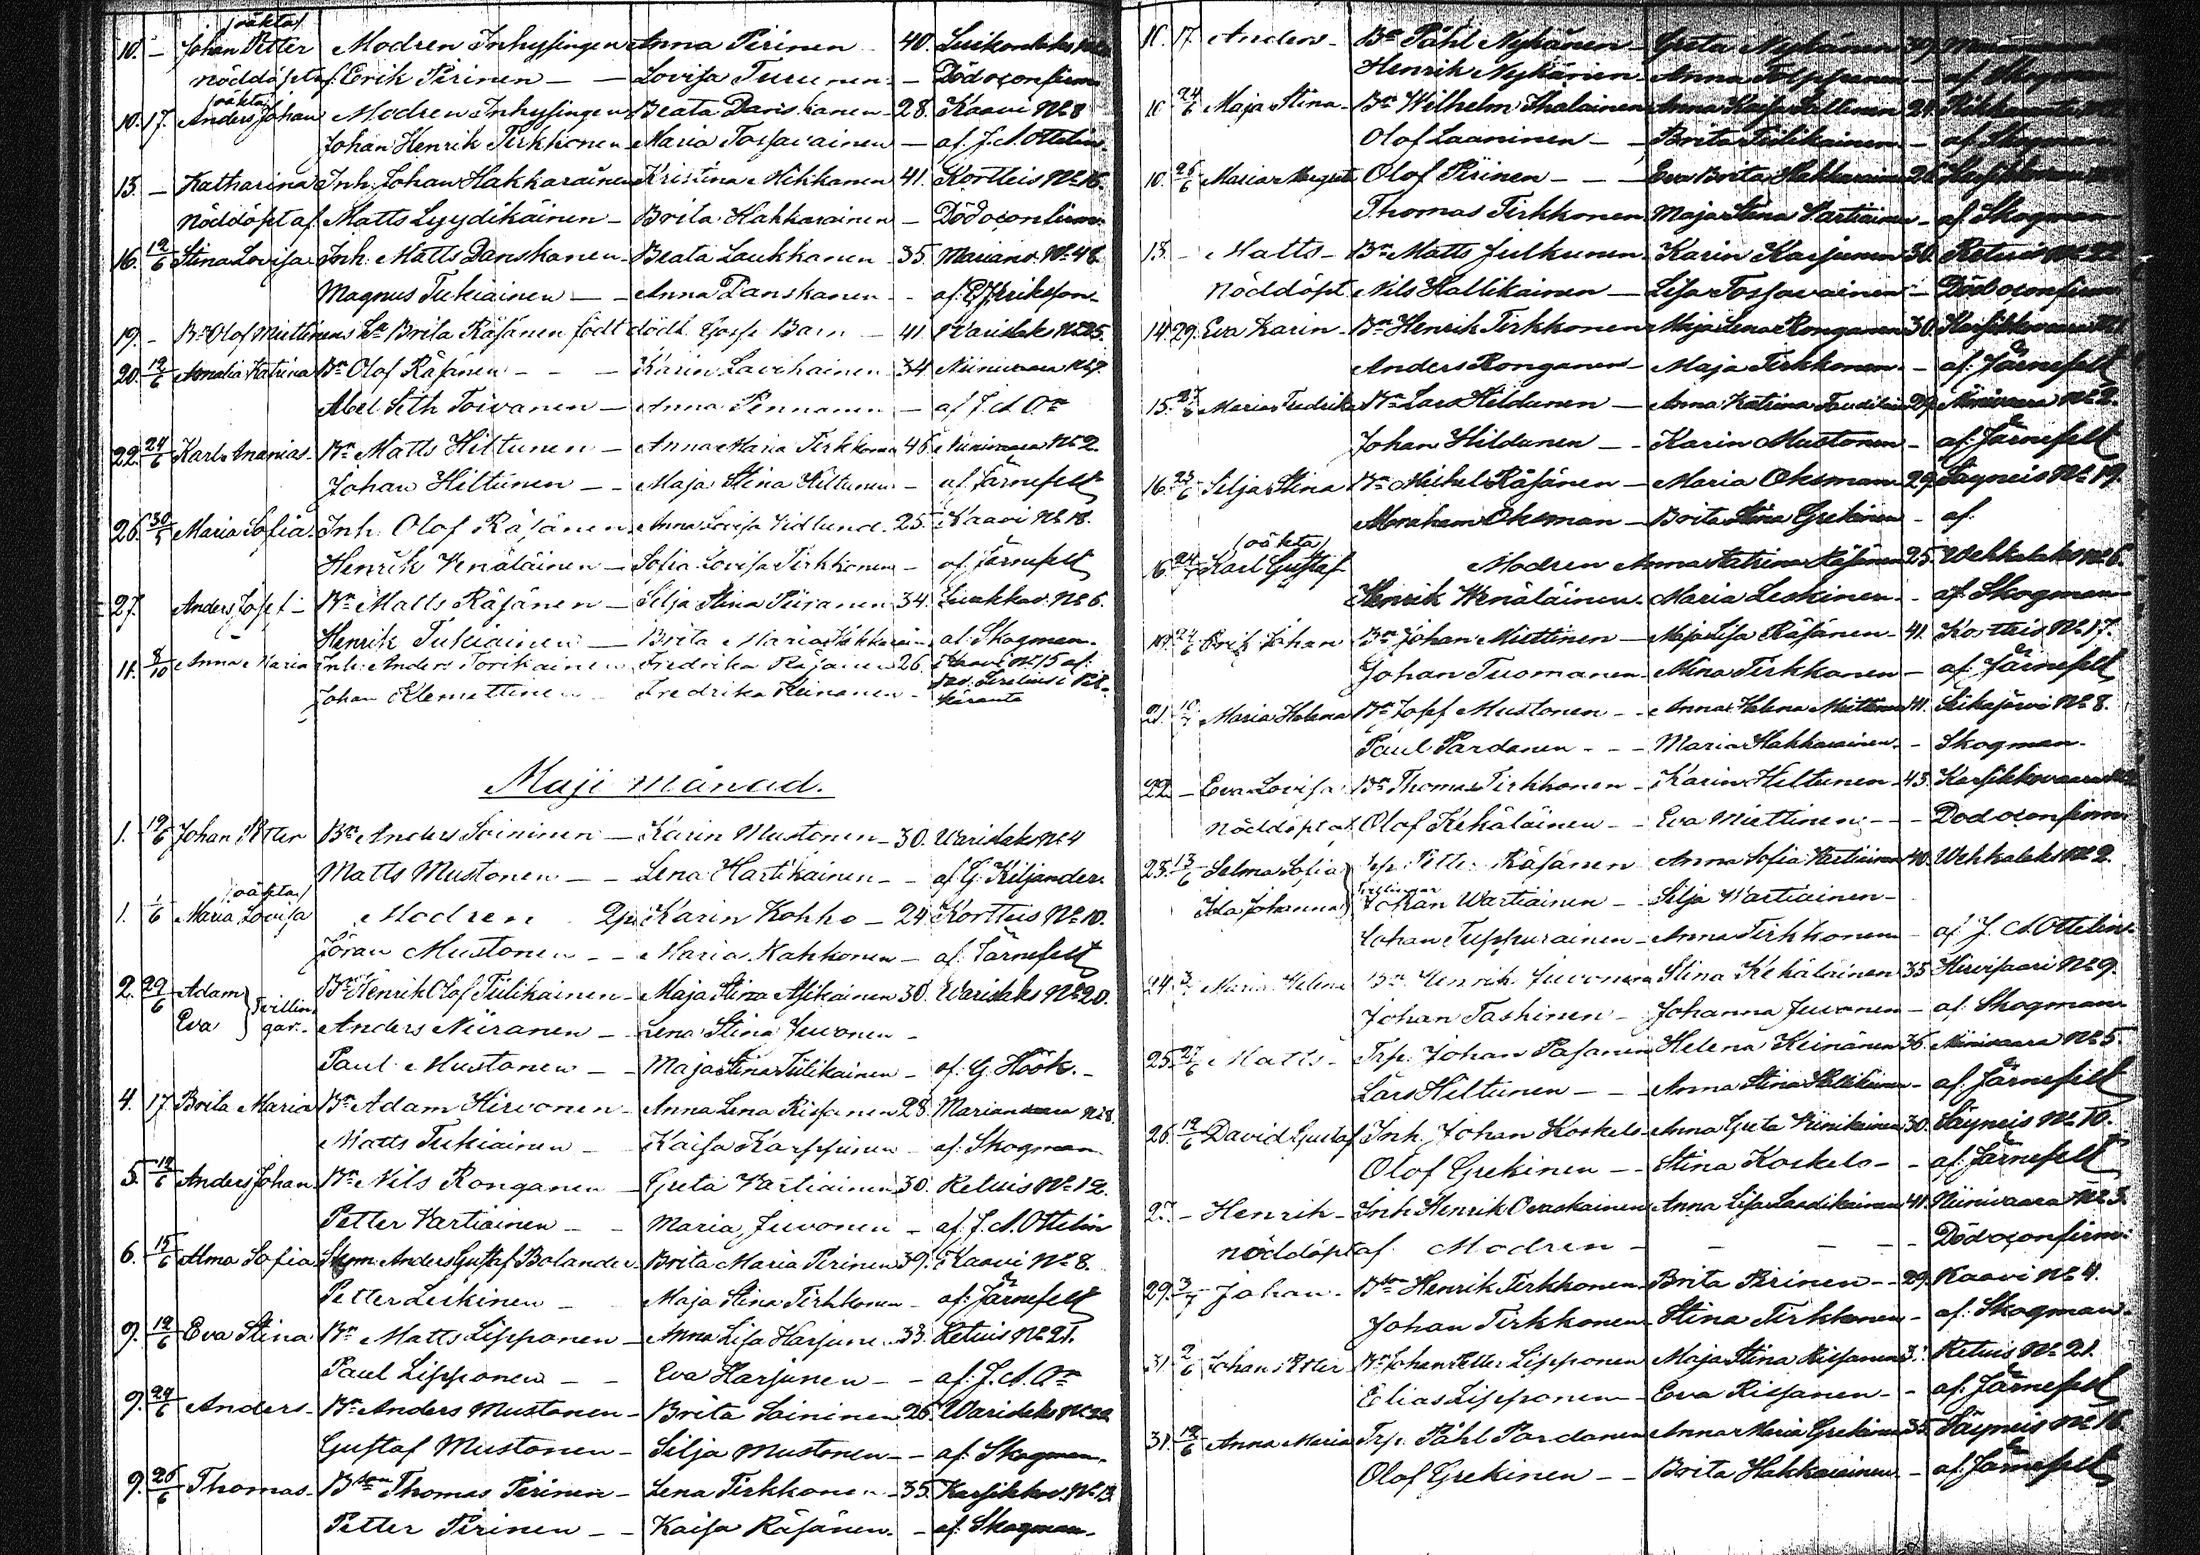 (oäkta)
10. — Johan Petter Modren Inhysingen Anna Pirinen — 40.
nöddöpt af Erik Pirinen — — Lovisa Turunen — Död o confirm.
(oäkta)
10. 17. Anders Johan Modren Inhysingen Beata Danskanen — 28. Kaavi No 8
Johan Henrik Tirkkonen Maria Tossavainen — af J. A. Ottelin.
13. — Katharina Inh. Johan Hakkarainen Kristina Mikkanen 41. Kortteis No 16.
Nöddöpt af Matts Lyydikäinen — Brita Hakkarainen — Död o confirm.
16. 12/6 Stina Lovisa Inh. Matts Danskanen — Beata Laukkanen 35. Marianv. No 48.
Magnus Tukiainen — — Anna Danskanen — af
19. — Bn Olof Miettinens h. Brita Räsänen född dödt Gosse Barn — 41. No 25.
20. 12/6 Amalia Katrina Bn Olof Räsänen — — — Karin Lavikainen 34
Abel Seth Toivanen — Anna Pennanen — af J. A. On
22. 24/6 Karl Ananias — Bn Matts Hiltunen — Anna Maria Tirkkonen 46. Niinivaara No 2.
Johan Hiltunen — — Maja Stina Hiltunen — af Järnefelt
26. 30/5 Maria Sofia Inh. Olof Räsänen Anna Lovisa Vidlund. 25. Kaavi No 18.
Henrik Venäläinen — Sofia Lovisa Tirkkonen — af Järnefelt
27. Anders Josef — Bn Matts Räsänen — Silja Stina Piiranen 34. No 6.
Henrik Tukiainen — Brita Maria Hakkarain. af. Skogman.
11. 8/10 Anna Maria Inh. Anders Torikainen Fredrika Räsänen 26. Kaavi No 15 af.
Johan Klemettinen — Fredrika Heinonen —
Maji månad.
1. 19/6 Johan Petter Bn Anders Soininen — Karin Mustonen — 30. Varislaks No 4
Matts Mustonen — — Lena Hartikainen — — af G. Kiljander.
(oäkta)
1. 1/6 Maria Lovisa Modren Pig. Karin Kokko — 24. Kortteis No 10.
Jöran Mustonen — — Maria Kahkonen — af. Järnefelt
2. 29/6 Adam Bn Henrik Olof Tiilikainen — Maja Stina Asikainen 30. Varislaks No 20.
Eva } Tvillingar. Anders Niiranen — Lena Stina Juvonen —
Paul Mustonen — — Maja Stina Tiilikainen — af. G. Höök. —
4. 17 Brita Maria Bn Adam Hirvonen — Anna Lena Rissanen 28. Marianvaara
Matts Tukiainen — Kaisa Karppinen — af. Skogman
5. 12/6 Anders Johan Bn Nils Ronganen — Greta Vartiainen 30. Retuis No 12.
Petter Vartiainen — — Maria Juvonen — af. J. A. Ottelin
6. 15/6 Alma Sofia Anders Gustaf Bolander. Brita Maria Pirinen 39. Kaavi No 8.
Petter Leskinen — Maja Stina Tirkkonen — af: Järnefelt
9. 12/6 Eva Stina Bn Matts Lipponen — Anna Lisa Harjunen 33. Retuis No 21.
Paul Lipponen — — Eva Harjunen — — af. J. A. On
9. 24/6 Anders — Bn Anders Mustonen — Brita Soininen 26. Varislaks No 22
Gustaf Mustonen — Silja Mustonen — — af. Skogman.
9. 26/6 Thomas — Bson Thomas Pirinen — Lena Tirkkonen — 35. Karsikkov. No 13.
Petter Pirinen — — Kaisa Räsänen. — af. Skogman.
10. 17. Anders — Bn Påhl Nykänen — Greta Nykänen
Henrik Nykänen — Anna — af Skogman
10. 24/6 Maja Stina — Bn Wilhelm Ihalainen Anna Kaisa
Olof Laaninen — — Brita Tiilikainen — af Skogman
10. 26/6 Maria Margreta Olof Pirinen — — — Eva Brita Hakkarainen 26
Thomas Tirkkonen Maja Stina Vartiainen — af. Skogman
13. — Matts — Bn Matts Julkunen Karin Karjunen 30. Retuis No 22
Nöddöpt Nils Hallikainen — Lisa Tossavainen — Död o confirm
14. 29. Eva Karin — Bn Henrik Tirkkonen Maja Lena Ronganen 30. Karsikkovaara
Anders Ronganen — Maja Tirkkonen — af: Järnefelt
15. Maria Fredrika Bn Lars Hildunen — Anna Katrina 29. Niinivaara No 2.
Johan Hildunen — Karin Mustonen — af: Järnefelt
16. 23/6 Silja Stina Bn Mikkel Räsänen — Maria Oksman 29. Säyneis No 19.
Abraham Oksman — Brita Stina Grekinen — af.
(oäkta)
16. Karl Gustaf Modren Anna Katrina Räsänen 25. Vehkalaks No 6.
Henrik Wenäläinen. Maria Leskinen — af. Skogman
19. Erik Johan Bn Johan Miettinen — Maja Lisa Räsänen — 41. Kortteis No 17.
Johan Tuomanen — Mina Tirkkonen — af Järnefelt
21. Maria Helena Bn Josef Mustonen — — Anna Helena Miettinen 41. Siikajärvi No 8.
Paul Pardanen — — — Maria Hakkarainen. — Skogman.
22. — Eva Lovisa Bn Thomas Tirkkonen — Karin Hiltunen — 43. Karsikkovaara
Nöddöpt af Olof Kekäläinen — — Eva Miettinen — — — Död o confirm
23. 13/6 Selma Sofia Petter Räsänen Anna Sofia Vartiainen 40. Vehkalaks No 2.
Ida Johanna } Tvillingar Johan Wartiainen — Silja Wartiainen —
Johan Tuppurainen — Anna Tirkkonen — af J. A. Ottelin.
24. Maria Helena Bn Henrik Juvonen Stina Kekäläinen 35 Hirvisaari No 9.
Johan Taskinen — Johanna Juvonen — af: Skogman
25. Matts — Trp. Johan Pasanen Helena Keinänen 36. Niinivaara No 5.
Lars Hiltunen — — Anna Stina Hallikainen — af. Järnefelt
26. 12/6 David Gustaf Inh. Johan Koskelo — Anna Greta 30. Säyneis No 10.
Olof Grekinen — — Stina Koskelo — — af: Järnefelt
27. — Henrik — Inh Henrik Ovaskainen Anna Lisa 41. Niinivaara No 3.
nöddöpt af. Modren — — — — Död o confirm.
29. 3/7 Johan — Bson Henrik Tirkkonen Brita Pirinen — — 29. Kaavi No 4.
Johan Tirkkonen Stina Tirkkonen — af: Skogman.
31. 2/6 Johan Petter Bn Johan Petter Lipponen Maja Stina Rissanen Retuis No 21.
Elias Lipponen — Eva Rissanen — — af: Järnefelt
31. 12/6 Anna Maria Trp. Påhl Pardanen Anna Maria Grekinen 35. Säyneis No 16.
Olof Grekinen — — Brita Hakkarainen — af: Järnefelt